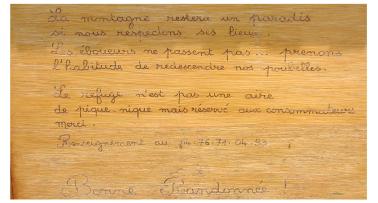 La montagne restera un paradis
si nous respectons ses lieux.
Les éboueurs ne passent pas... prenons
l'habitude de redescendre nos poubelles.
Le refuge n'est pas une aire
de pique-nique mais réservé aux consommateurs
merci.
Renseignement au 04.76.71.04.93
Bonne Randonnée !